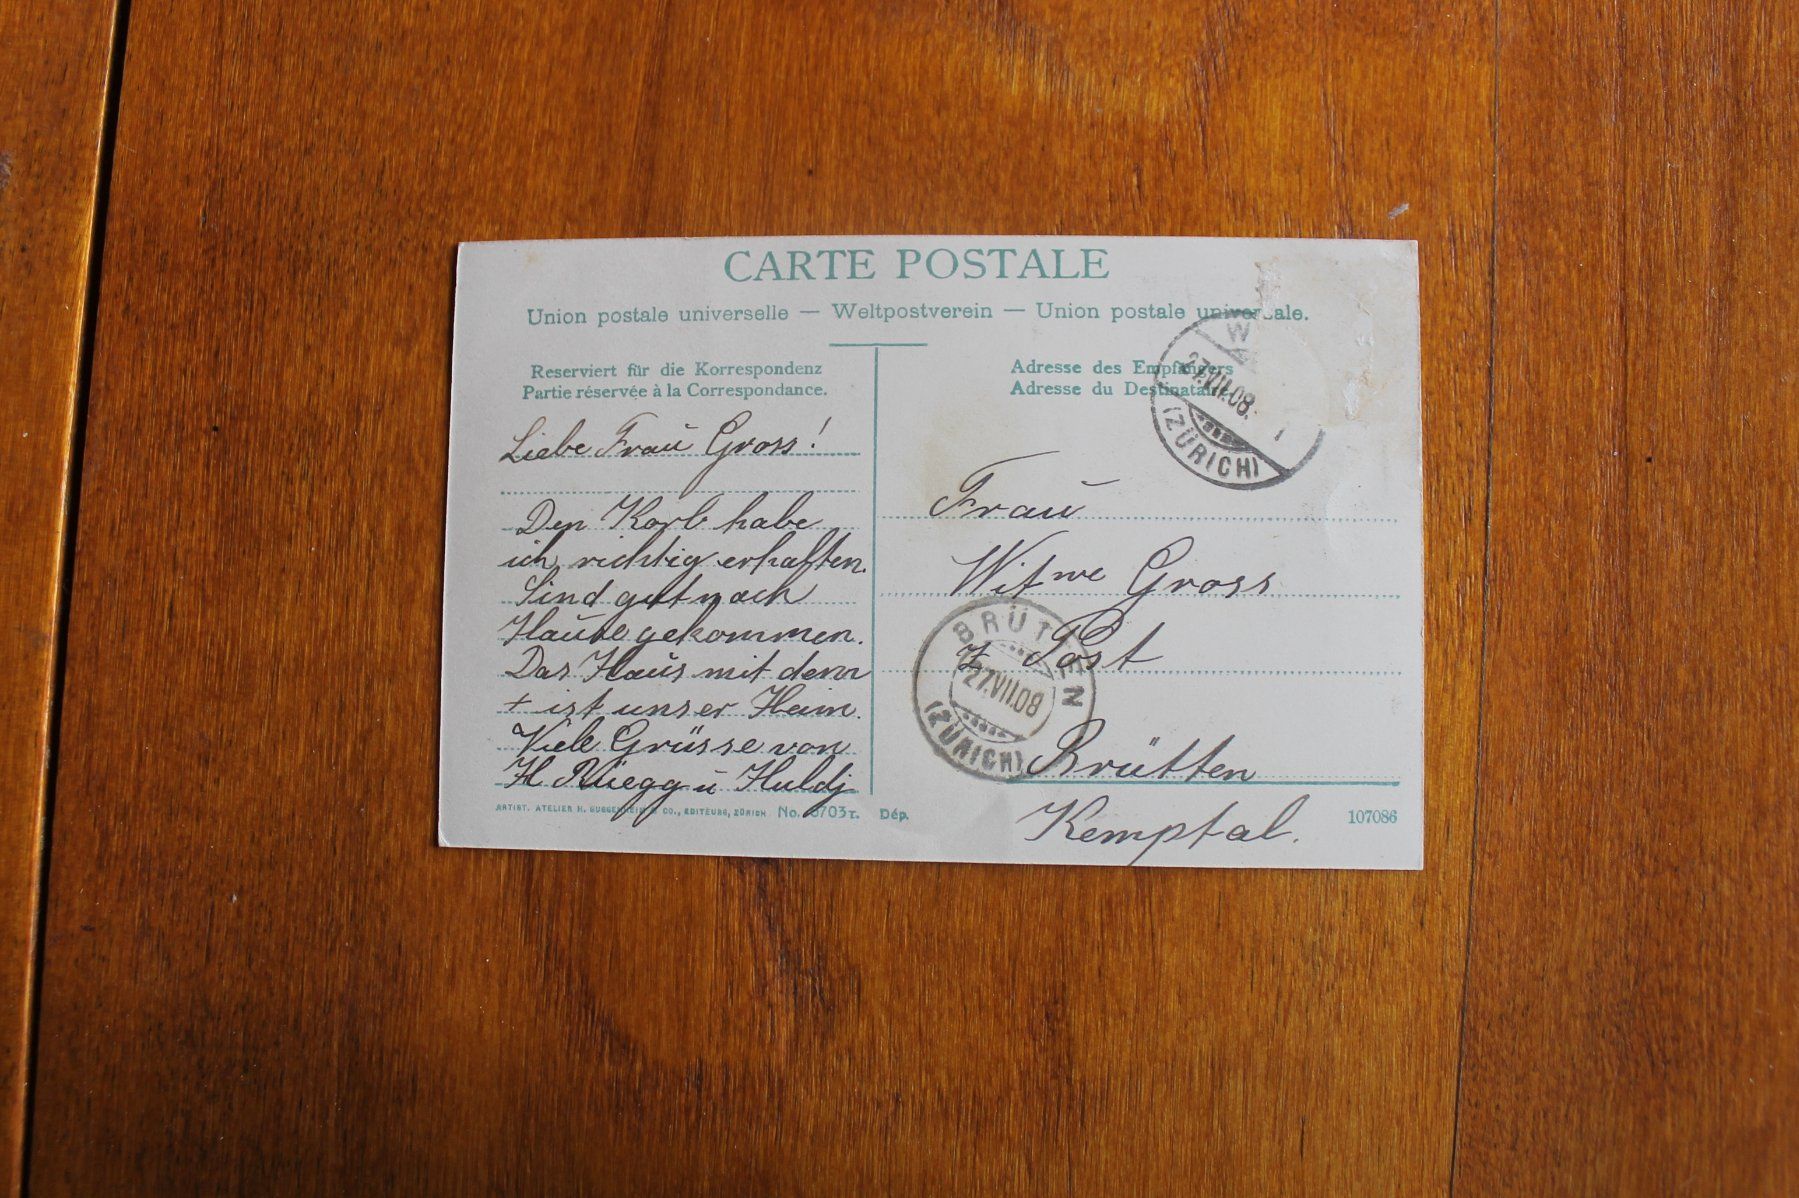 CARTE POSTALE
Union postale universelle — Weltpostverein — Union postale universale.
Reserviert für die Korrespondenz
Partie réservée à la Correspondance.
Liebe Frau Gross!
Den Korb habe
ich richtig erhalten.
Sind gut nach
Hause gekommen.
Das Haus mit dem
+ ist unser Heim.
Viele Grüsse von
H. Rüegg u Huldj
ARTIST. ATELIER H. GUGGENHEIM & CO., EDITEURS, ZÜRICH No. 8703T. Dép.
Adresse des Empfängers
Adresse du Destinataire
W
27.VII.08.
(ZÜRICH)
Frau
Witwe Gross
z Post
Brütten
Kemptal.
BRÜTTEN
27.VII.08
(ZÜRICH)
107086